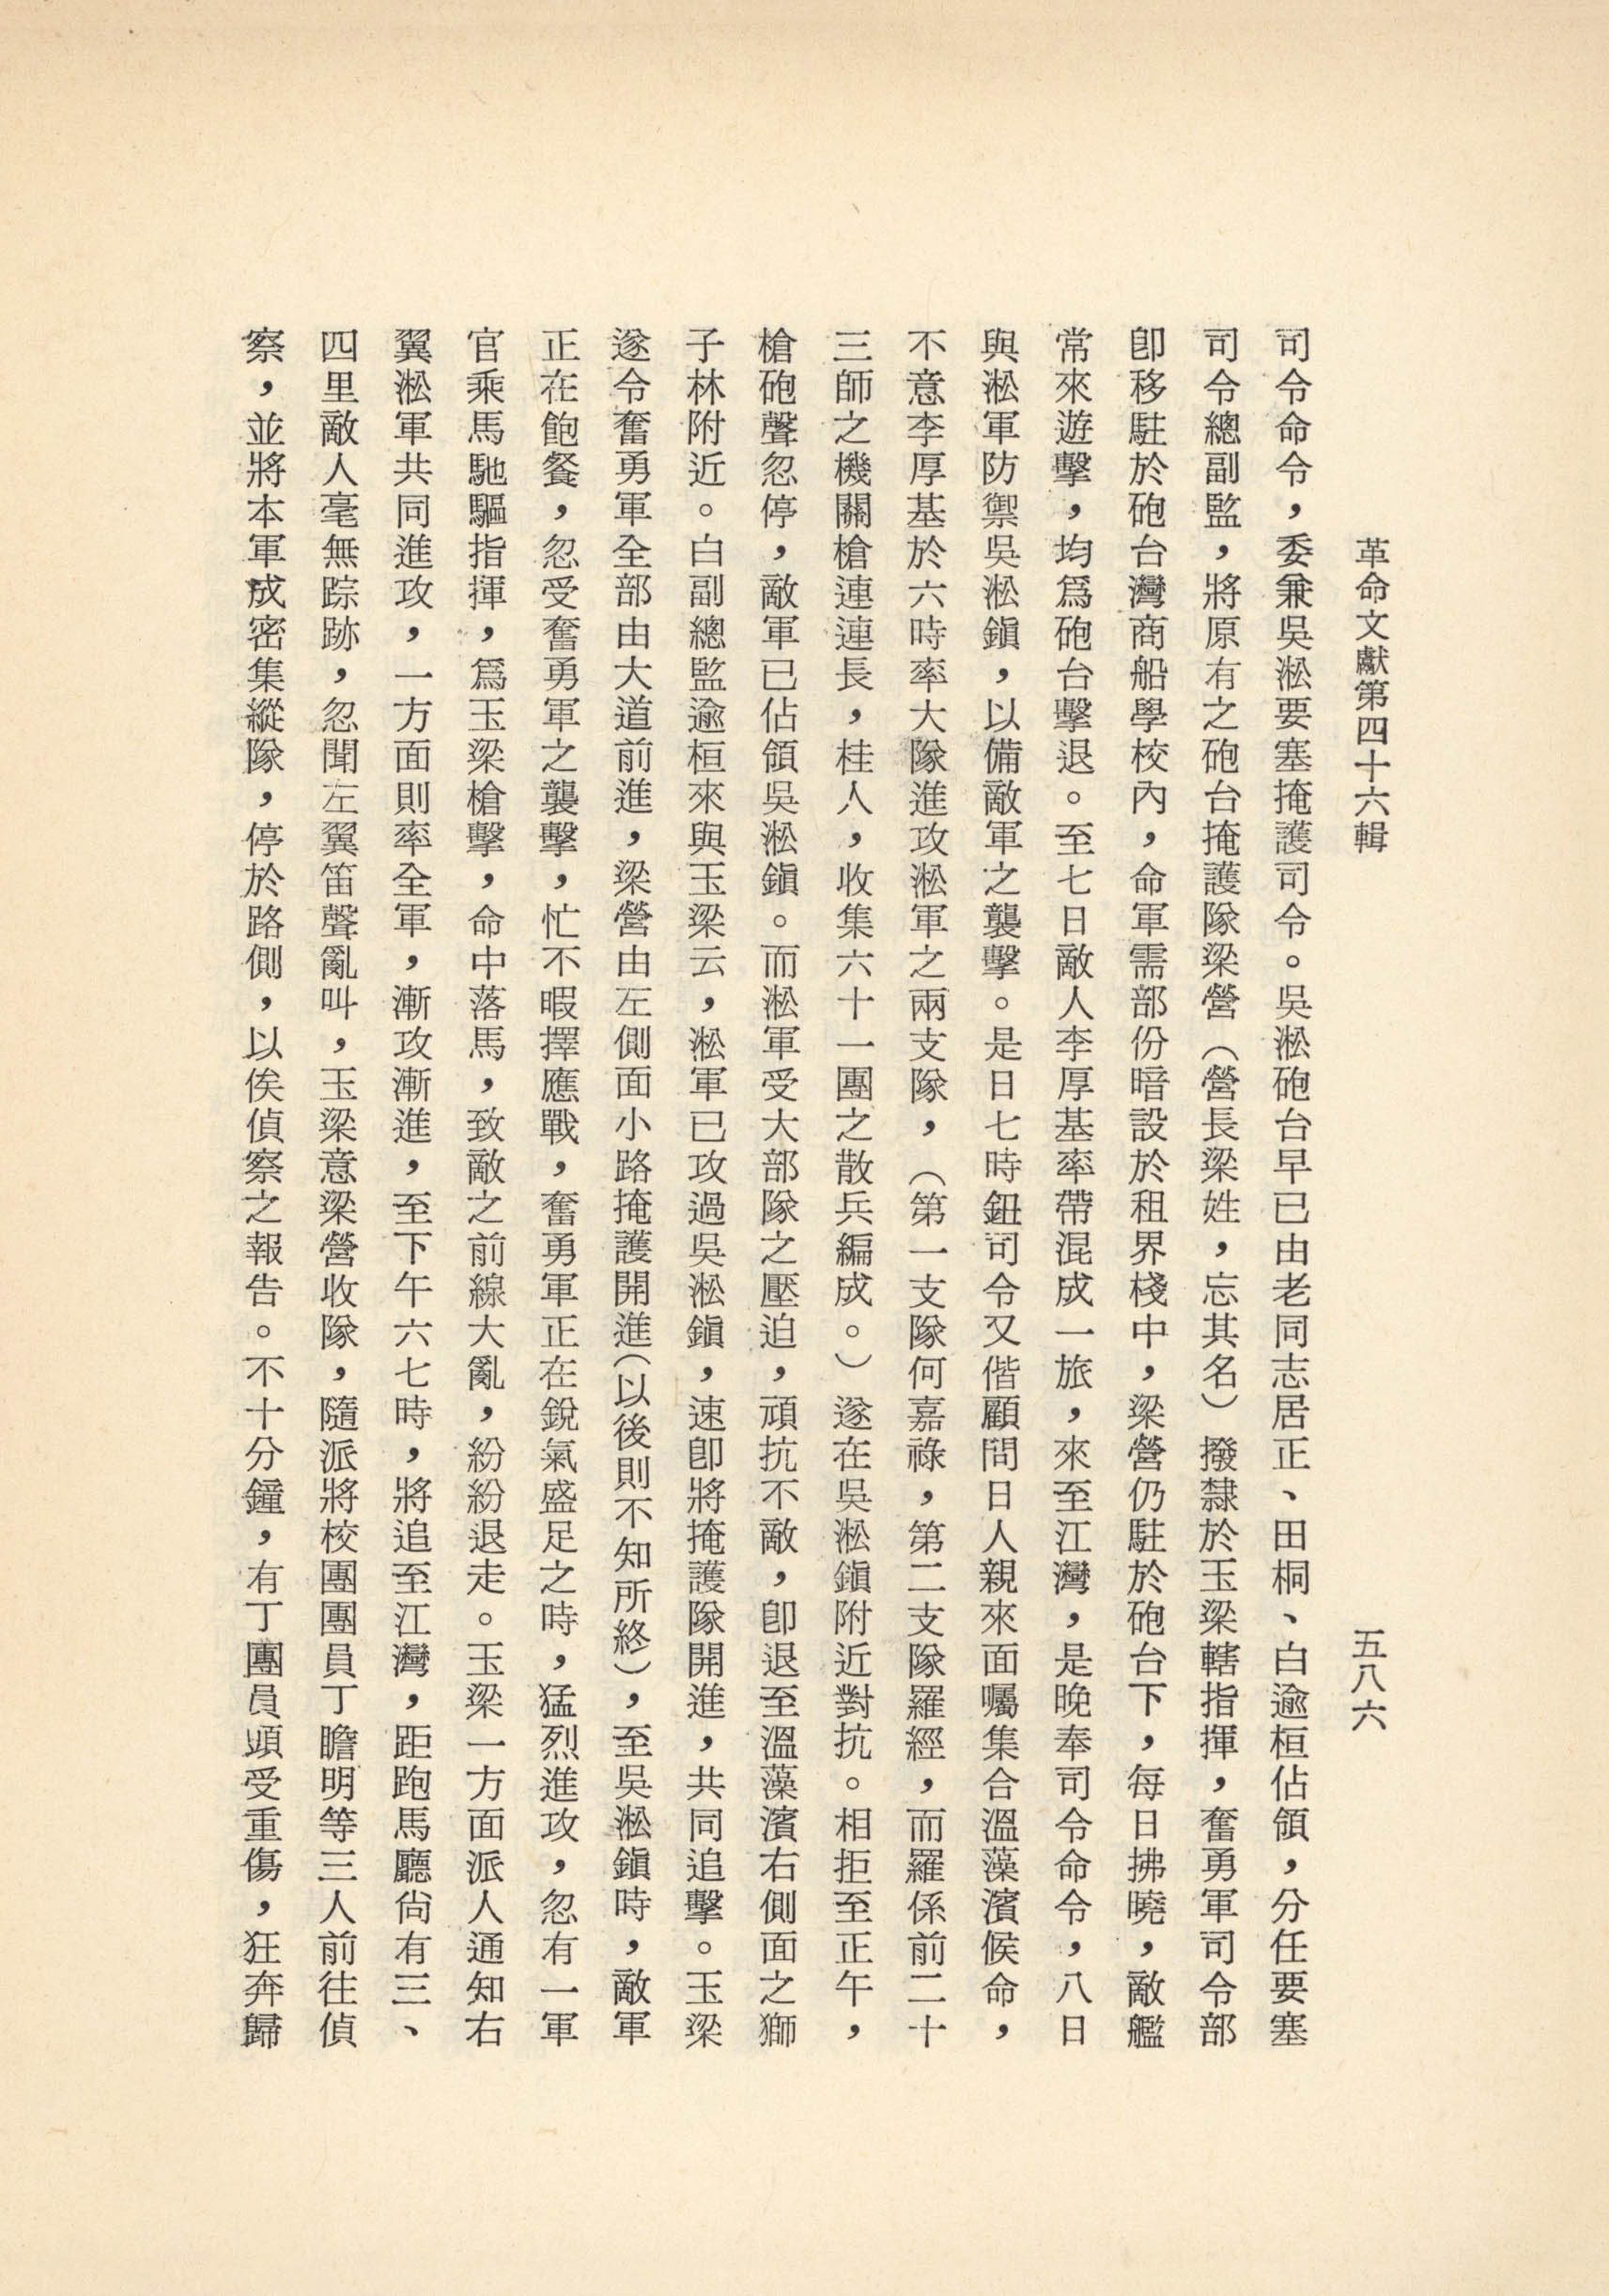 革命文獻第四十六輯
五八六
司令命令，委兼吳淞要塞掩護司令。吳淞砲台早已由老同志居正、田桐、白逾桓佔領，分任要塞
司令總副監，將原有之砲台掩護隊梁營（營長梁姓，忘其名）撥隸於玉梁轄指揮，奮勇軍司令部
卽移駐於砲台灣商船學校內，命軍需部份暗設於租界棧中，梁營仍駐於砲台下，每日拂曉，敵艦
常來遊擊，均爲砲台擊退。至七日敵人李厚基率帶混成一旅，來至江灣，是晚奉司令命令，八日
與淞軍防禦吳淞鎭，以備敵軍之襲擊。是日七時鈕司令又偕顧問日人親來面囑集合溫藻濱候命，
不意李厚基於六時率大隊進攻淞軍之兩支隊，（第一支隊何嘉祿，第二支隊羅經，而羅係前二十
三師之機關槍連連長，桂人，收集六十一團之散兵編成。）遂在吳淞鎭附近對抗。相拒至正午，
槍砲聲忽停，敵軍已佔領吳淞鎭。而淞軍受大部隊之壓迫，頑抗不敵，卽退至溫藻濱右側面之獅
子林附近。白副總監逾桓來與玉梁云，淞軍已攻過吳淞鎭，速卽將掩護隊開進，共同追擊。玉梁
遂令奮勇軍全部由大道前進，梁營由左側面小路掩護開進（以後則不知所終），至吳淞鎭時，敵軍
正在飽餐，忽受奮勇軍之襲擊，忙不暇擇應戰，奮勇軍正在銳氣盛足之時，猛烈進攻，忽有一軍
官乘馬馳驅指揮，爲玉梁槍擊，命中落馬，致敵之前線大亂，紛紛退走。玉梁一方面派人通知右
翼淞軍共同進攻，一方面則率全軍，漸攻漸進，至下午六七時，將追至江灣，距跑馬廳尙有三、
四里敵人毫無踪跡，忽聞左翼笛聲亂叫，玉梁意梁營收隊，隨派將校團團員丁瞻明等三人前往偵
察，並將本軍成密集縱隊，停於路側，以俟偵察之報告。不十分鐘，有丁團員頭受重傷，狂奔歸